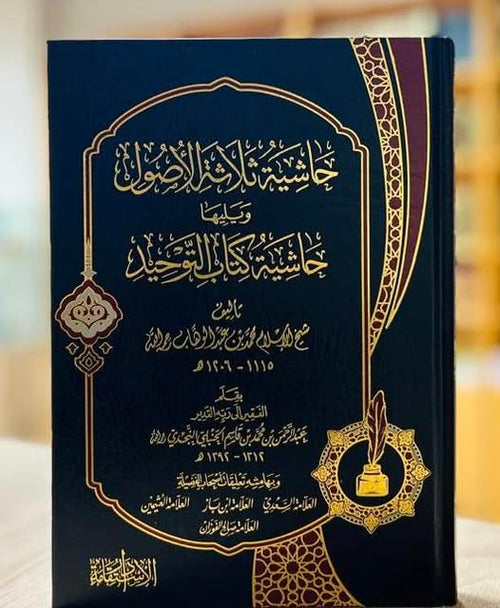 حَاشِيَة ثَلَاثَة الأُصُول
وَيَليهَا
حَاشِيَة كِتَاب التَّوحِيد
تأليف
شيخ الإسلام محمد بن عبد الوهاب رحمه الله
١١١٥ - ١٢٠٦ هـ
بقلم
الفقير إلى ربه القدير
عبد الرحمن بن محمد بن قاسم الحنبلي النجدي رحمه الله
١٣١٢ - ١٣٩٢ هـ
وبهامشه تعليقات أصحاب الفضيلة
العلامة السعدي العلامة ابن باز العلامة العثيمين
العلامة صالح الفوزان